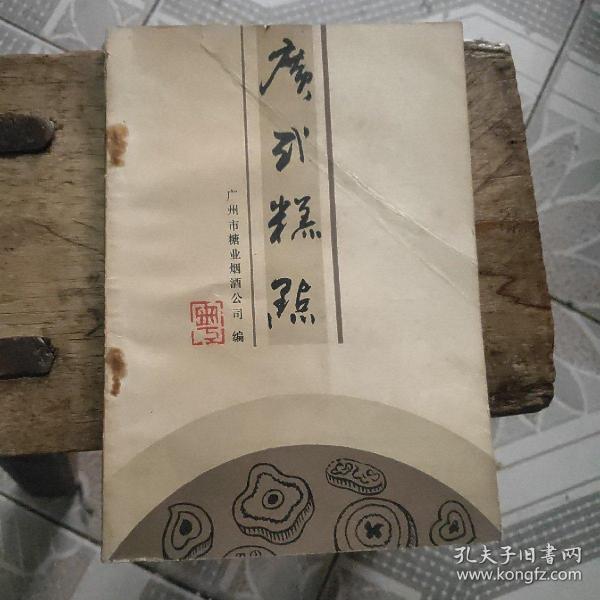 廣式糕點
广州市糖业烟酒公司 编
粤
孔夫子旧书网
www.kongfz.com